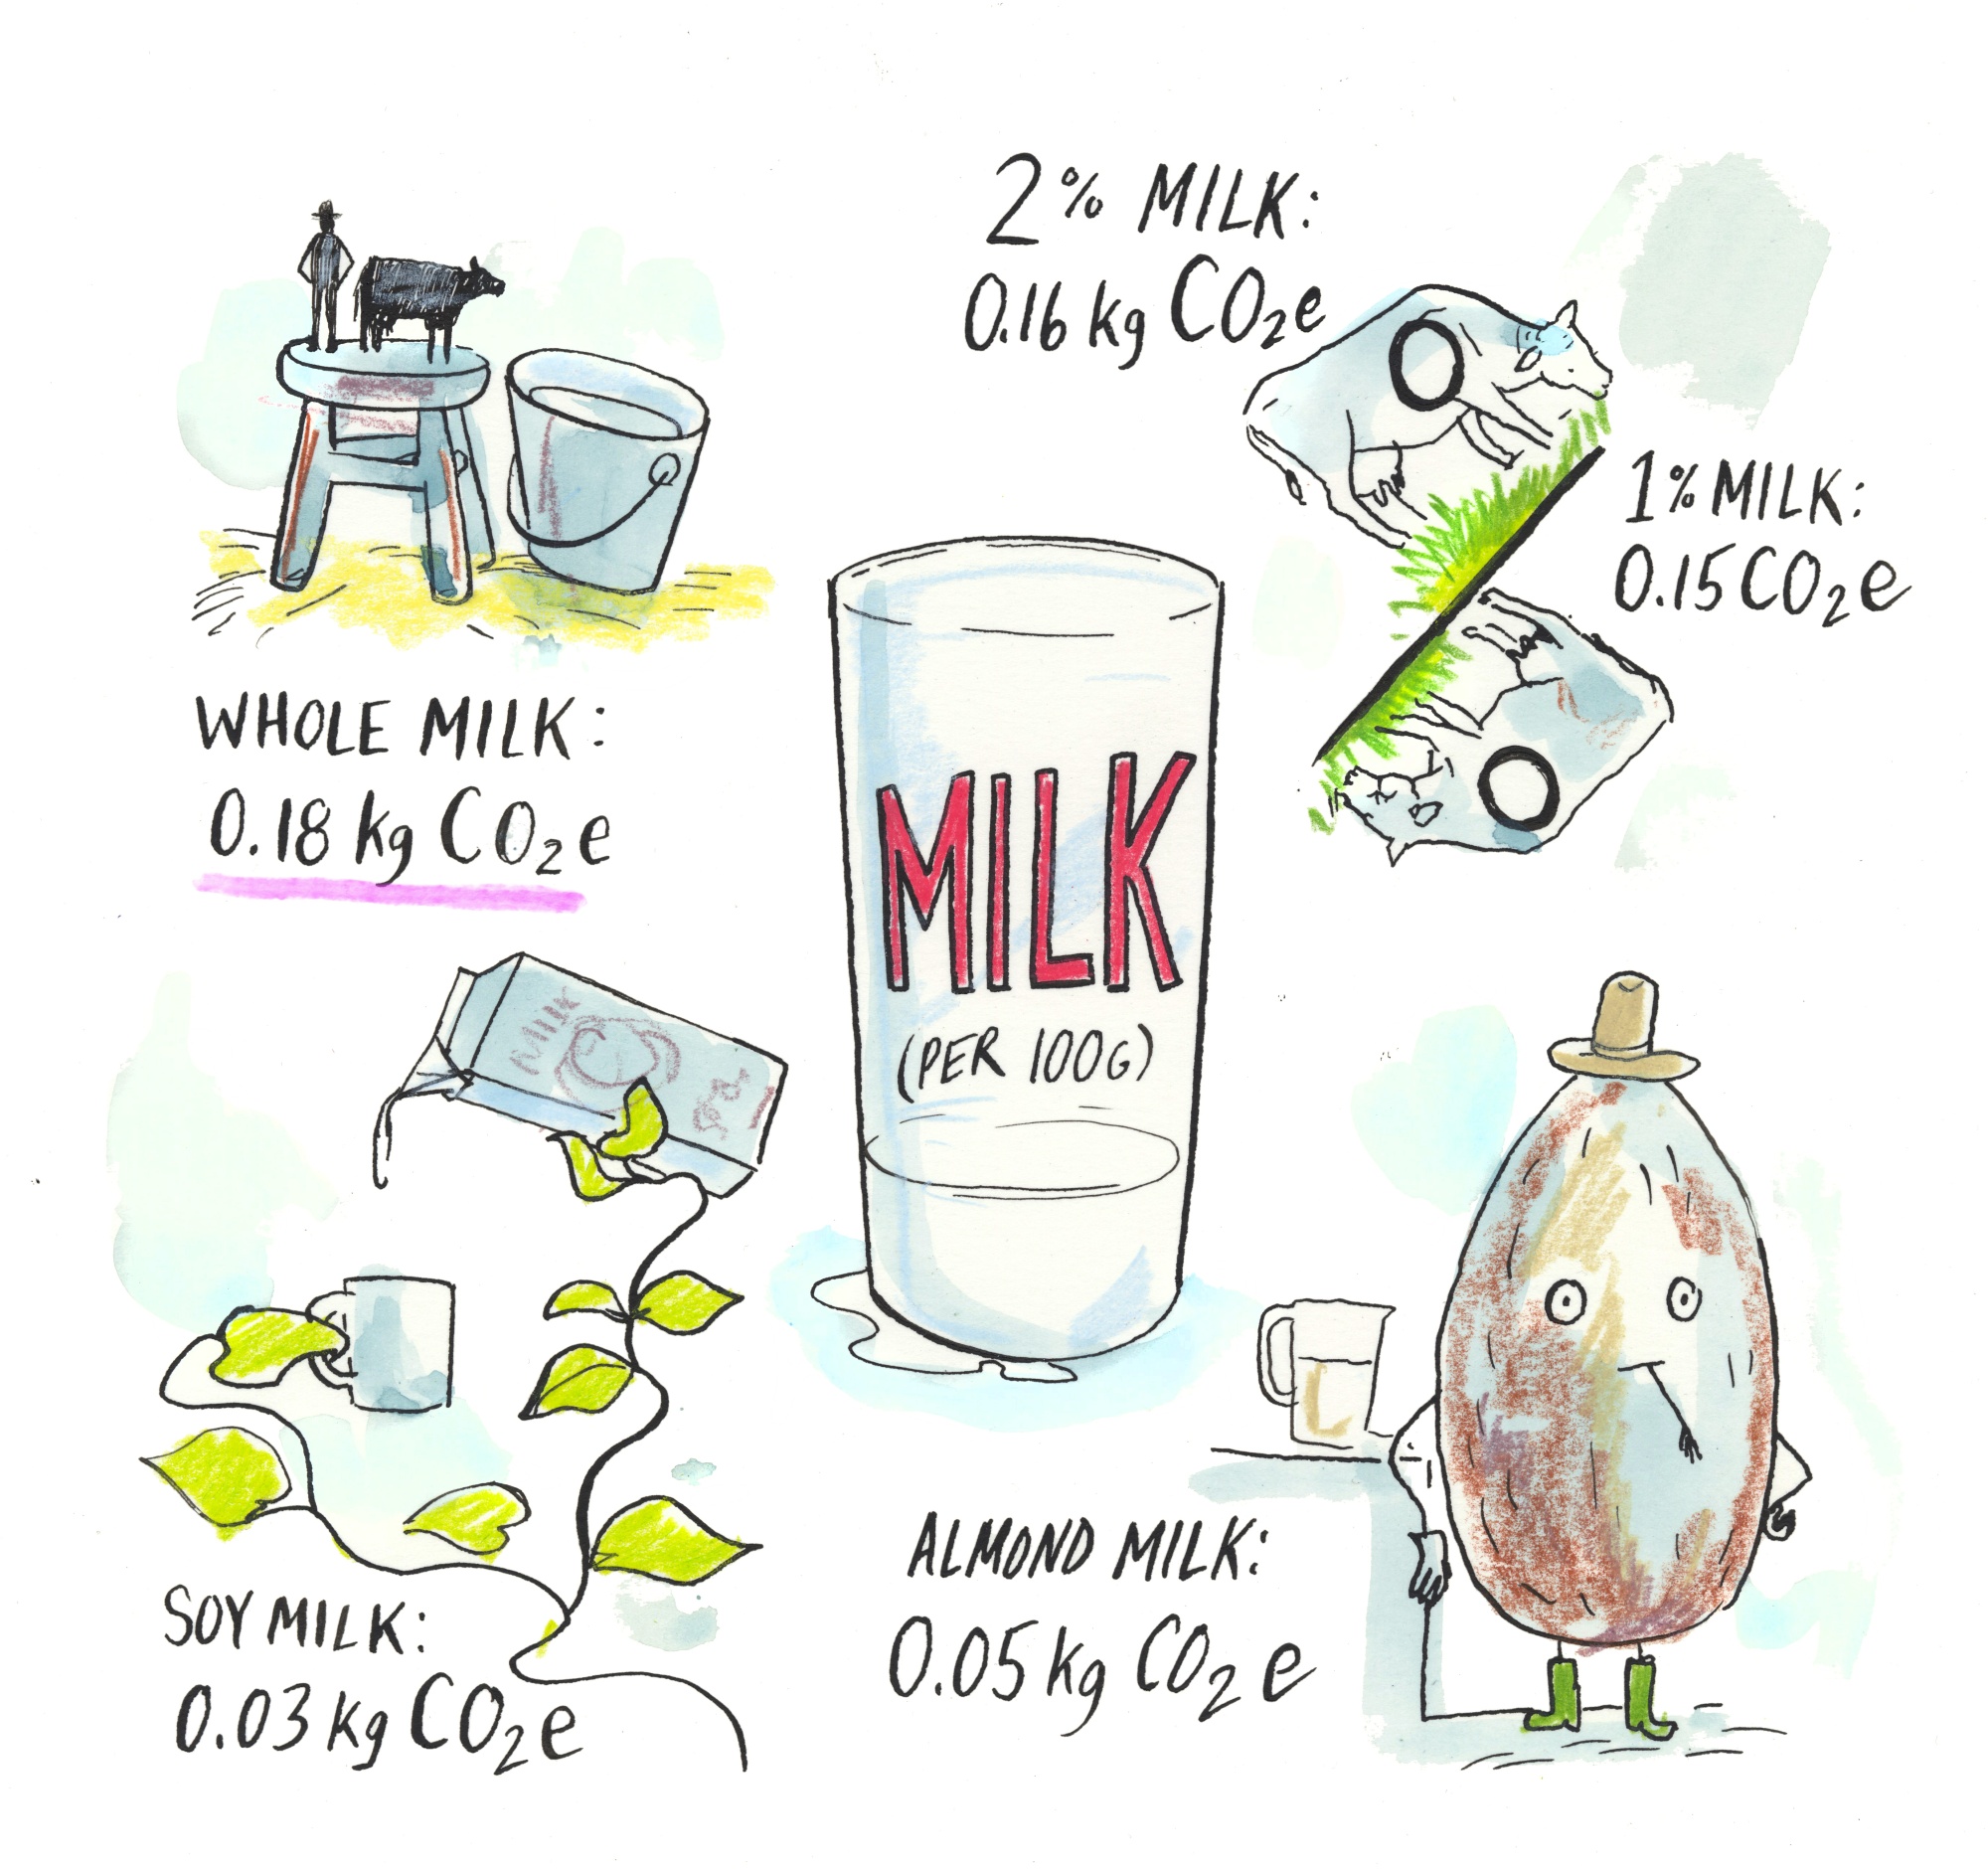 2% MILK:
0.16 kg CO₂e
1% MILK:
0.15 CO₂e
WHOLE MILK:
0.18 kg CO₂e
MILK
(PER 100G)
MILK
SOY MILK:
0.03 kg CO₂e
ALMOND MILK:
0.05 kg CO₂e